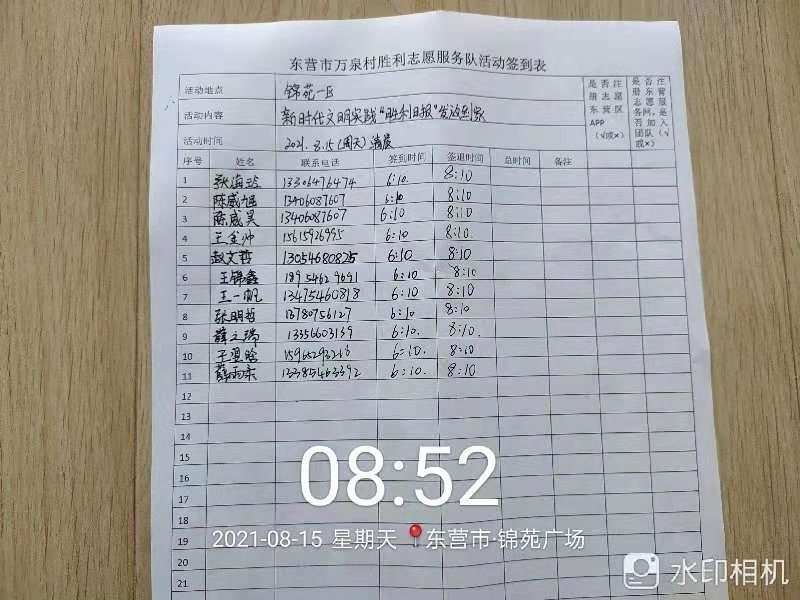 东营市万泉村胜利志愿服务队活动签到表
活动地点 锦苑一区
活动内容 新时代文明实践“胜利日报”发放到家
活动时间 2021.8.15(周天)清晨
是否注册志愿东营区APP（√或×）
是否注册东营志愿服务网,是否加入团队（√或×）
序号 姓名 联系电话 签到时间 签退时间 总时间 备注
1 6:10 8:10
2 陈威旭 13406087607 6:10 8:10
3 陈威昊 13406087607 6:10 8:10
4 王全帅 15615926995 6:10 8:10
5 赵文哲 13054680825 6:10 8:10
6 王锦鑫 6:10 8:10
7 王一帆 13475460818 6:10 8:10
8 张明哲 13780756127 6:10 8:10
9 薛之瑞 13356603139 6:10. 8:10.
10 6:10. 8:10.
11 薛雨东 13385463392 6:10. 8:10
12
13
14
15
16
17
18
19
20
21
08:52
2021-08-15 星期天 东营市·锦苑广场
水印相机